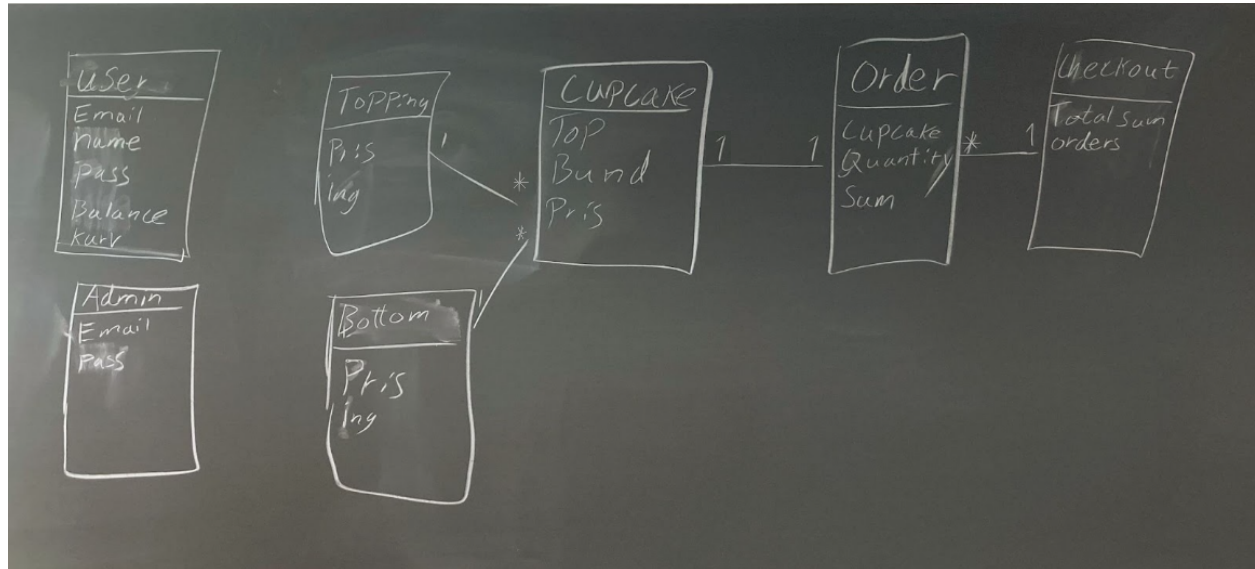 User
Email
name
Pass
Balance
kurv
Admin
Email
Pass
Topping
Pris
ing
1
*
Bottom
Pris
ing
1
*
Cupcake
Top
Bund
Pris
1
1
Order
Cupcake
Quantity
Sum
*
1
Checkout
Total sum
orders